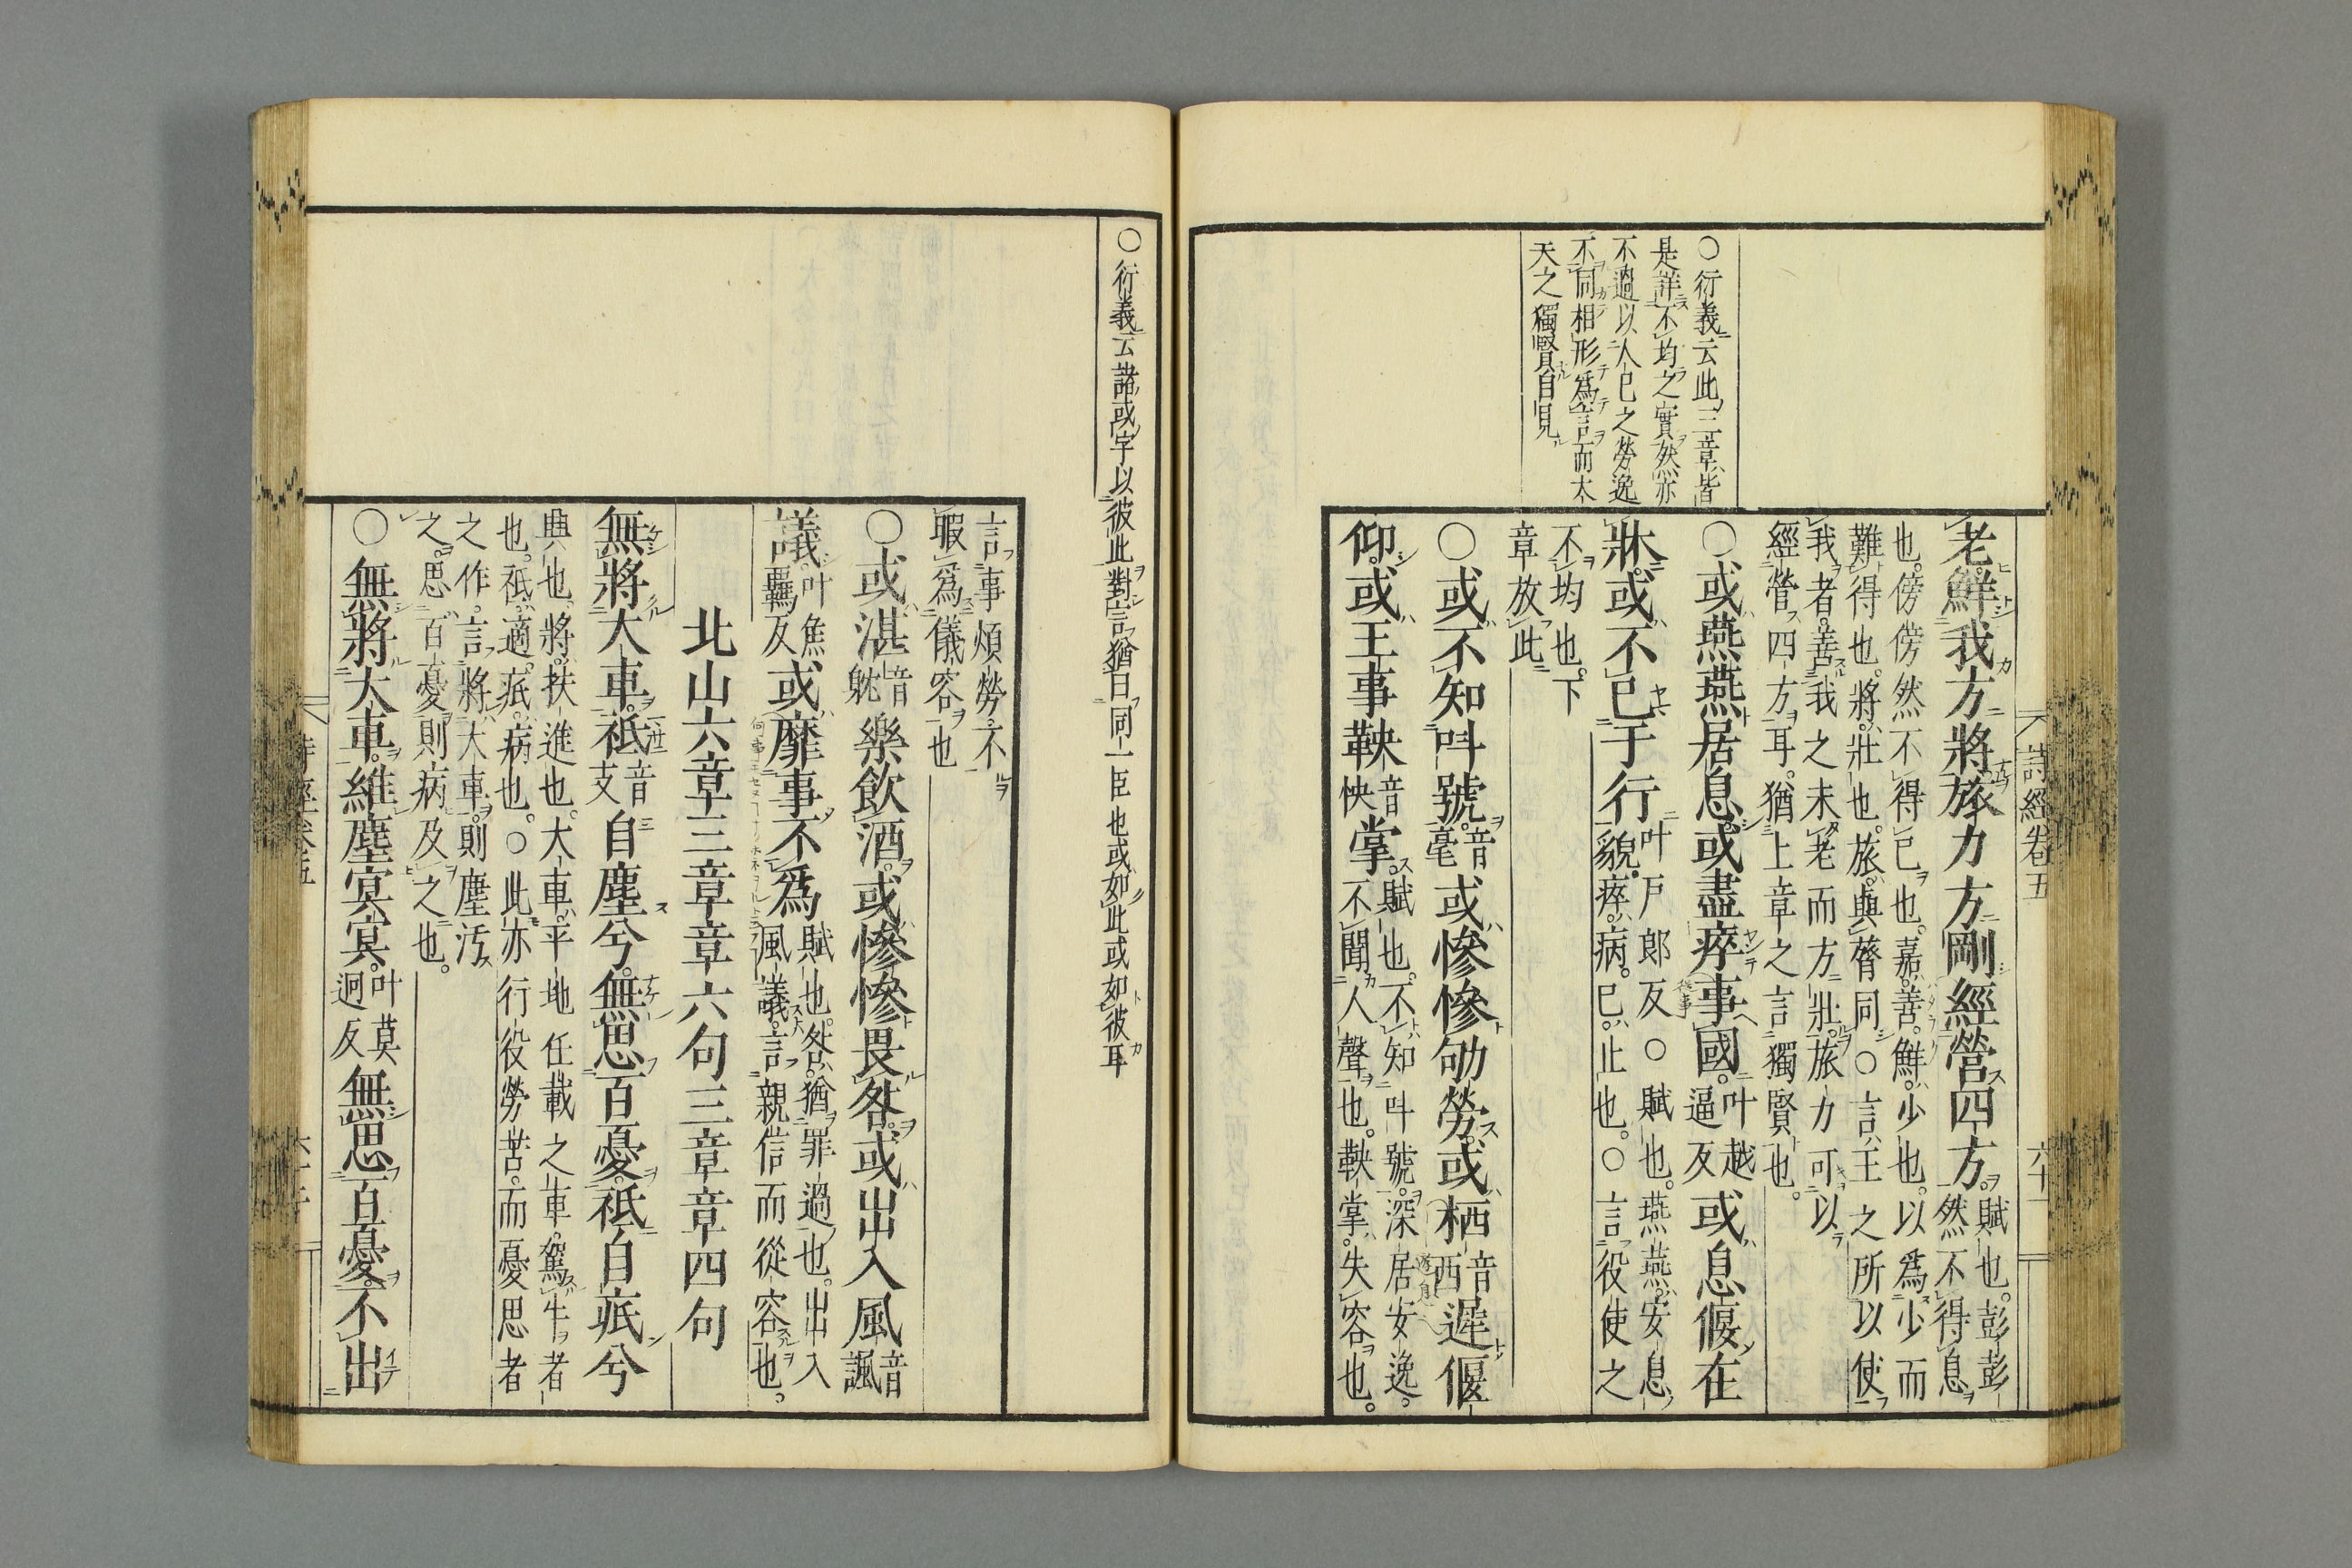 詩經卷五
六十一
○衍義云此三章皆
是詳不均之實然亦
不過以人已之勞逸
不同相形爲言而太
天之獨賢自見
老鮮我方將旅力方剛經營四方。賦也。彭彭
然不得息
也。傍傍然不得已也。嘉善。鮮少也。以爲少而
難得也。將壯也。旅與膂同○言王之所以使
我者。善我之未老而方壯。旅力可以
經營四方耳。猶上章之言獨賢也。
○或燕燕居息。或盡瘁事國。叶越
逼反
或息偃在
牀。或不已于行叶戶郎反○賦也。燕燕。安息
貌。瘁。病。已。止也。○言役使之
不均也。下
章放此
○或不知叫號。音
毫
或慘慘劬勞。或栖音
西
遲偃
仰。或王事鞅音
怏
掌。賦也。不知叫號。深居安逸。
不聞人聲也。鞅掌。失容也。
○衍義云諸或字以彼此對言猶曰同一臣也或如此或如彼耳
言事煩勞。不
暇爲儀容也
○或湛音
躭
樂飲酒。或慘慘畏咎。或出入風音
諷
議。叶
魚
羈反
或靡事不爲賦也。咎。猶罪過也。出入
風議。言親信而從容也。
北山六章三章章六句三章章四句
無將大車。祇音
支
自塵兮。無思百憂。祇自疷兮
興也。將。扶進也。大車。平地任載之車。駕牛者
也。祇。適。疷。病也。○此亦行役勞苦。而憂思者
之作。言將大車。則塵汚
之。思百憂則病及之也。
○無將大車。維塵冥冥。叶莫
迥反
無思百憂。不出